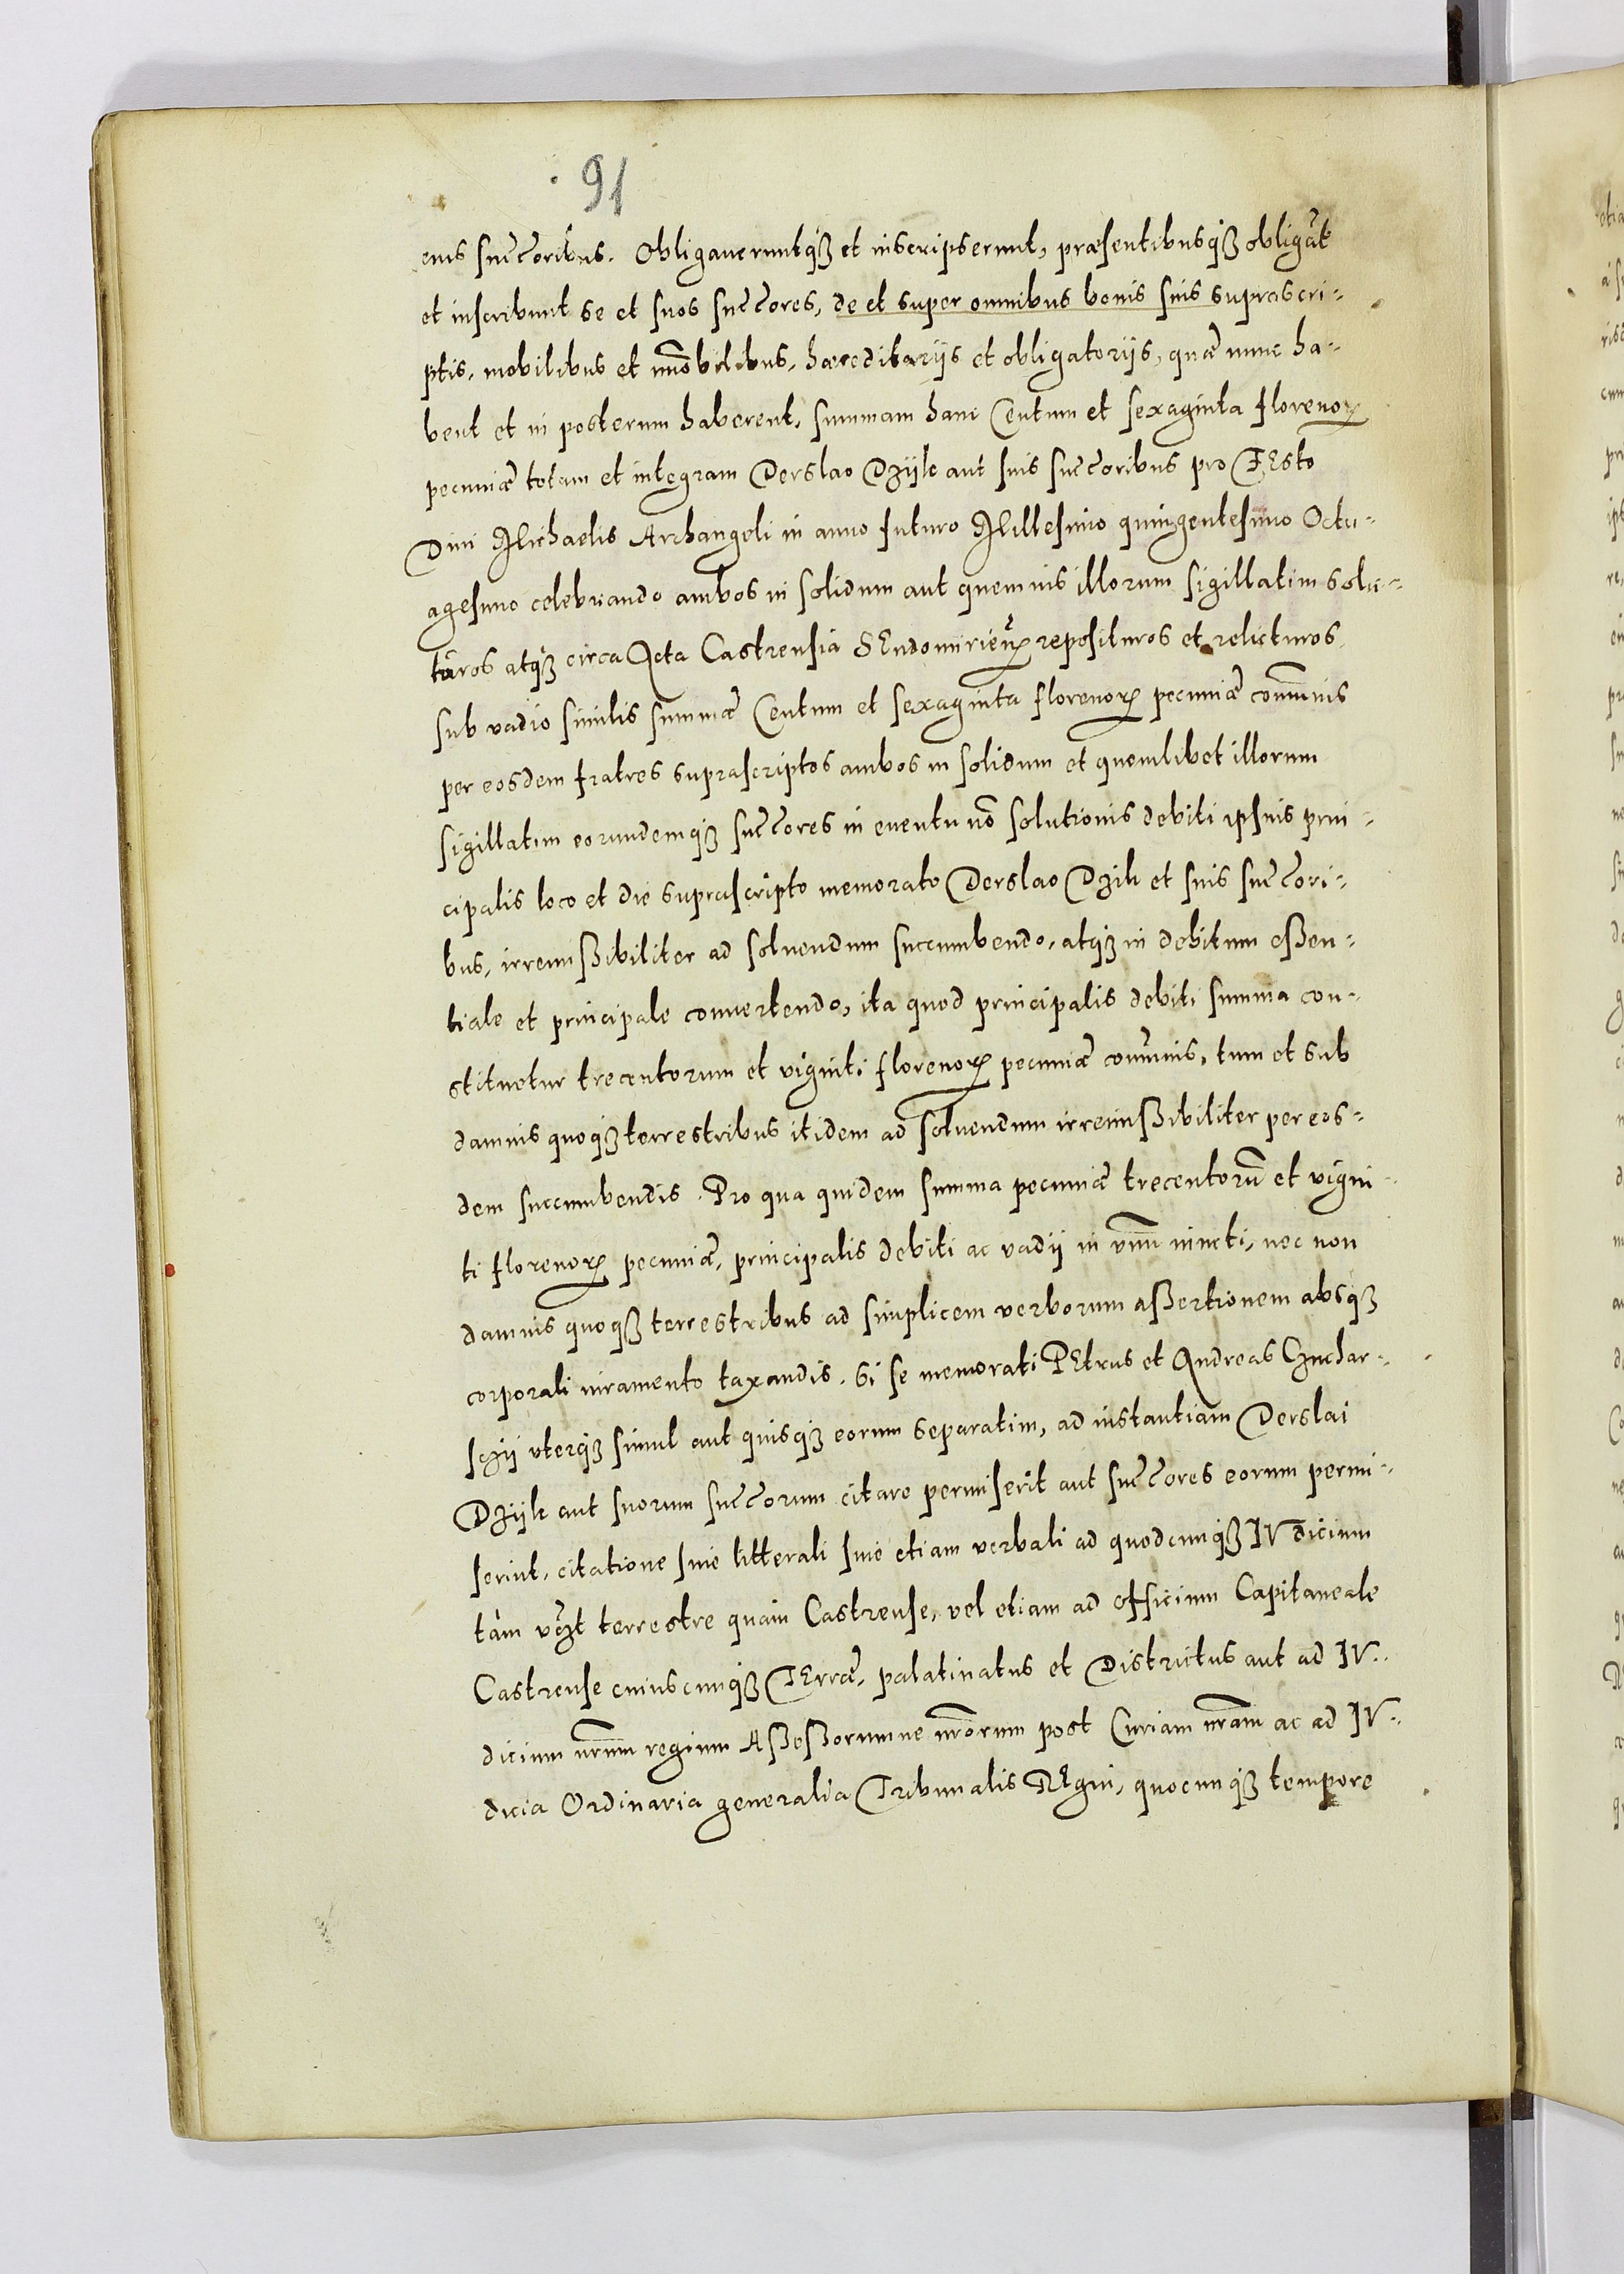 91
eius succoribus. Obligaveruntqȝ et inscripserunt, præsentibusqȝ obligãt
et inscribunt se et suos succores, de et super omnibus bonis suis suprascri-
ptis, mobilibus et im̃obilibus, hæreditarijs et obligatorijs, quæ nunc ha-
bent et in posterum haberent, summam hanc Centum et sexaginta florenoꝝ
pecuniæ totam et integram Derslao Dzijle aut suis succoribus pro FEsto
Diui Michaelis Archangeli in anno futuro Millesimo quingentesimo Octu-
agesimo celebrando ambos in solidum aut quemuis illorum sigillatim solu-
turos atqȝ circa Acta Castrensia SEndomirieñ reposituros et relicturos
sub vadio similis summæ Centum et sexaginta florenoꝝ pecuniæ com̃unis
per eosdem fratres suprascriptos ambos in solidum et quemlibet illorum
sigillatim eorundemqȝ succores in euentu nõ solutionis debiti ipsius prin-
cipalis loco et die suprascripto memorato Derslao Dzili et suis succori-
bus, irremißibiliter ad soluendum succumbendo, atqȝ in debitum eßen-
tiale et principale conuertendo, ita quod principalis debiti summa con-
stituetur trecentorum et viginti florenoꝝ pecuniæ com̃unis, tum et sub
damnis quoqȝ terrestribus itidem ad soluendum irremißibiliter per eos-
dem succumbendis. Pro qua quidem summa pecuniæ trecentorũ et vigin-
ti florenoꝝ pecuniæ, principalis debiti ac vadij in vnũ iuncti, nec non
damnis quoqȝ terrestribus ad simplicem verborum aßertionem absqȝ
corporali iuramento taxandis. Si se memorati PEtrus et Andreas Czuchar-
sczij vterqȝ simul aut quisqȝ eorum separatim, ad instantiam Derslai
Dzijle aut suorum succorum citare permiserit aut succores eorum permi-
serint, citatione siue litterali siue etiam verbali ad quodcunqȝ IVdicium
tàm vczt terrestre quàm Castrense, vel etiam ad officium Capitaneale
Castrense cuiuscunqȝ TErræ, palatinatus et Districtus aut ad IV-
dicium nr̃um regium Aßeßorumue nr̃orum post Curiam nr̃am ac ad IV-
dicia Ordinaria generalia Tribunalis REgni, quocunqȝ tempore